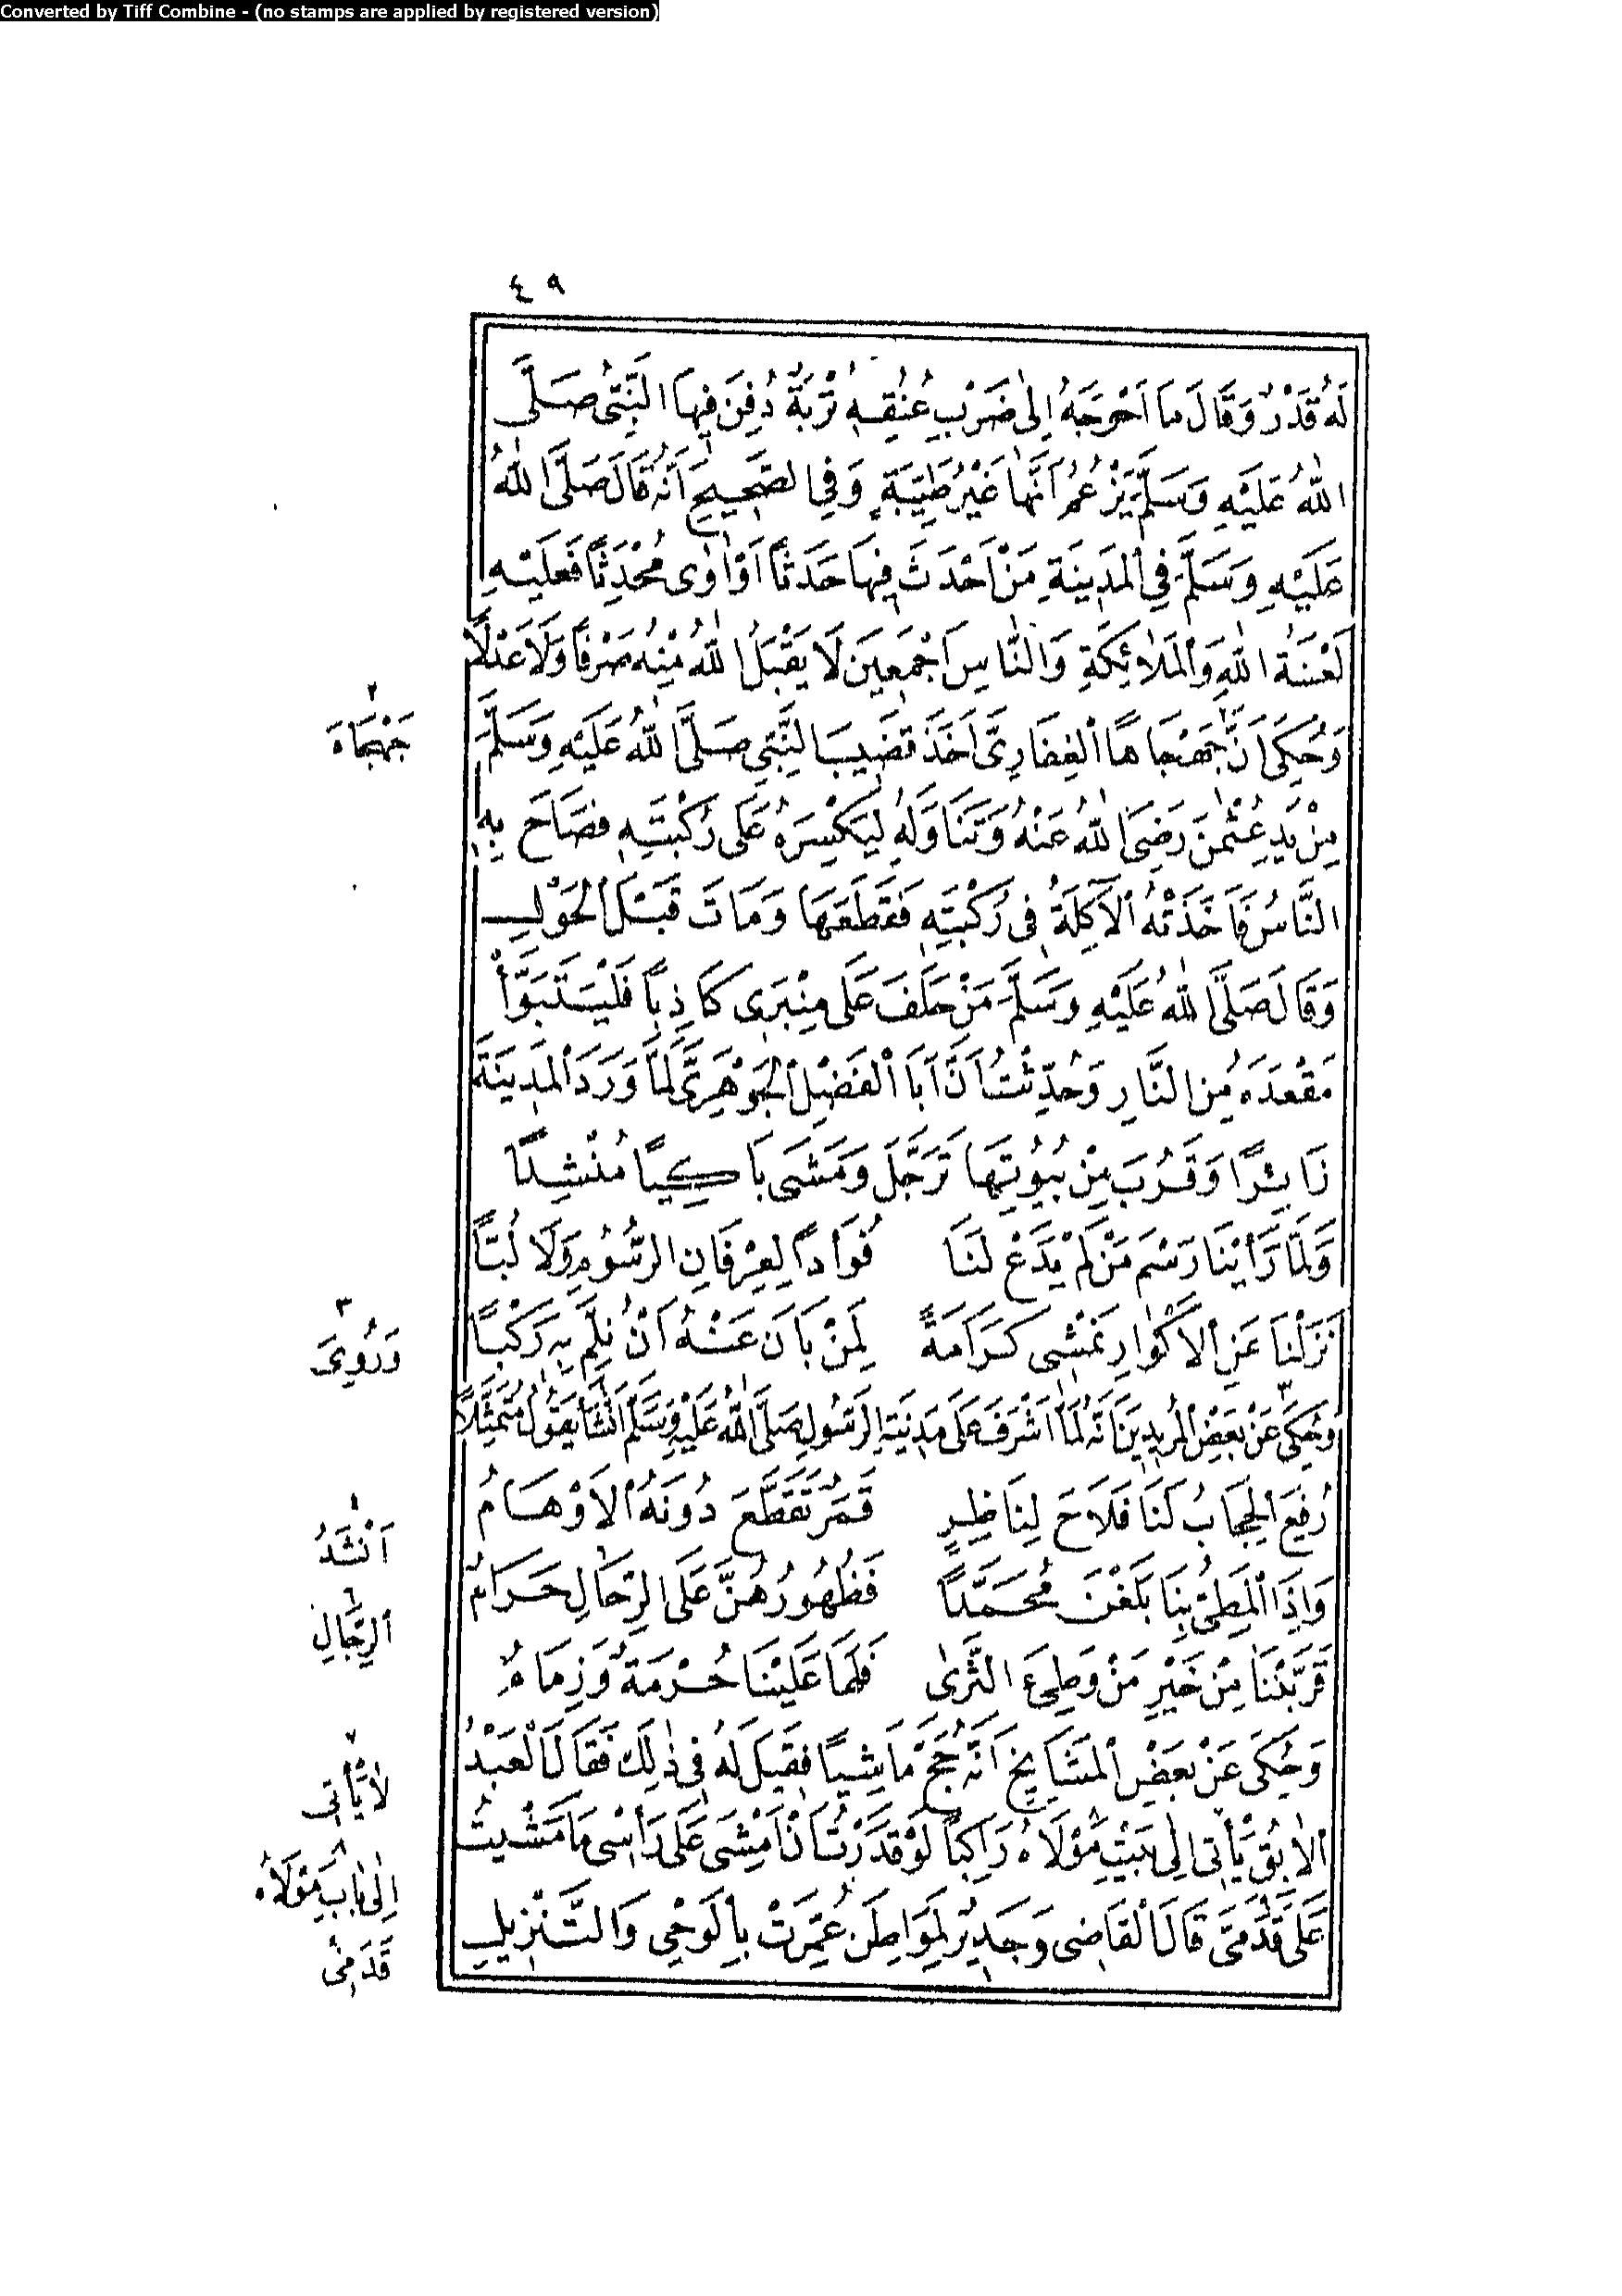 Converted by Tiff Combine - (no stamps are applied by registered version)
٤٩
لَهُ قَدْرٌ وَقَالَ مَا اَحْوَجَهُ اِلٰى ضَرْبِ عُنُقِهِ تُرْبَةٌ دُفِنَ فِيهَا النَّبِىُّ صَلَّى
اللهُ عَلَيْهِ وَسَلَّمَ يَزْعُمُ اَنَّهَا غَيْرُ طَيِّبَةٍ وَفِى الصَّحِيحِ اَنَّهُ قَالَ صَلَّى اللهُ
عَلَيْهِ وَسَلَّمَ فِى الْمَدِينَةِ مَنْ اَحْدَثَ فِيهَا حَدَثًا اَوْ اٰوٰى مُحْدِثًا فَعَلَيْهِ
لَعْنَةُ اللهِ وَالْمَلَائِكَةِ وَالنَّاسِ اَجْمَعِينَ لَا يَقْبَلُ اللهُ مِنْهُ صَرْفًا وَلَا عَدْلًا
وَحُكِىَ اَنَّ جَهْجَاهًا الْغِفَارِىَّ اَخَذَ قَضِيبَ النَّبِىِّ صَلَّى اللهُ عَلَيْهِ وَسَلَّمَ
٢
جَهْجَاهَ
مِنْ يَدِ عُثْمٰنَ رَضِىَ اللهُ عَنْهُ وَتَنَاوَلَهُ لِيَكْسِرَهُ عَلَى رُكْبَتِهِ فَصَاحَ بِهِ
النَّاسُ فَاَخَذَتْهُ الْآكِلَةُ فِى رُكْبَتِهِ فَقَطَعَهَا وَمَاتَ قَبْلَ الْحَوْلِ
وَقَالَ صَلَّى اللهُ عَلَيْهِ وَسَلَّمَ مَنْ حَلَفَ عَلَى مِنْبَرِى كَاذِبًا فَلْيَتَبَوَّأْ
مَقْعَدَهُ مِنَ النَّارِ وَحُدِّثْتُ اَنَّ اَبَا الْفَضْلِ الْجَوْهَرِىَّ لَمَّا وَرَدَ الْمَدِينَةَ
زَائِرًا وَقَرُبَ مِنْ بُيُوتِهَا تَرَجَّلَ وَمَشَى بَاكِيًا مُنْشِدًا
وَلَمَّا رَأَيْنَا رَسْمَ مَنْ لَمْ يَدَعْ لَنَا فُوَادًا لِعِرْفَانِ الرُّسُومِ وَلَا لُبًّا
نَزَلْنَا عَنِ الْاَكْوَارِ نَمْشِى كَرَامَةً لِمَنْ بَانَ عَنْهُ اَنْ نُلِمَّ بِهِ رَكْبًا
٣
وَرُوِىَ
وَحُكِىَ عَنْ بَعْضِ الْمُرِيدِينَ اَنَّهُ لَمَّا اَشْرَفَ عَلَى مَدِينَةِ الرَّسُولِ صَلَّى اللهُ عَلَيْهِ وَسَلَّمَ اَنْشَأَ يَقُولُ مُتَمَثِّلًا
رُفِعَ الْحِجَابُ لَنَا فَلَاحَ لِنَاظِرٍ قَمَرٌ تَقَطَّعَ دُونَهُ الْاَوْهَامُ
اَنْشَدُ
وَاِذَا الْمَطِىُّ بِنَا بَلَغْنَ مُحَمَّدًا فَظُهُورُهُنَّ عَلَى الرِّحَالِ حَرَامٌ
٦
الرِّجَالِ
قَرَّبْنَنَا مِنْ خَيْرِ مَنْ وَطِئَ الثَّرٰى فَلَهَا عَلَيْنَا حُرْمَةٌ وَزِمَامٌ
وَحُكِىَ عَنْ بَعْضِ الْمَشَايِخِ اَنَّهُ حَجَّ مَاشِيًا فَقِيلَ لَهُ فِى ذٰلِكَ فَقَالَ الْعَبْدُ
٧
لَا يَأْتِى
الْاٰبِقُ يَأْتِى اِلٰى بَيْتِ مَوْلَاهُ رَاكِبًا لَوْ قَدَرْتُ اَنْ اَمْشِىَ عَلَى رَأْسِى مَا مَشَيْتُ
٨
اِلٰى بَابِ مَوْلَاهُ
عَلَى قَدَمَىَّ قَالَ الْقَاضِى وَجَدِيرٌ لِمَوَاطِنَ عُمِّرَتْ بِالْوَحْىِ وَالتَّنْزِيلِ
قَدَمِى